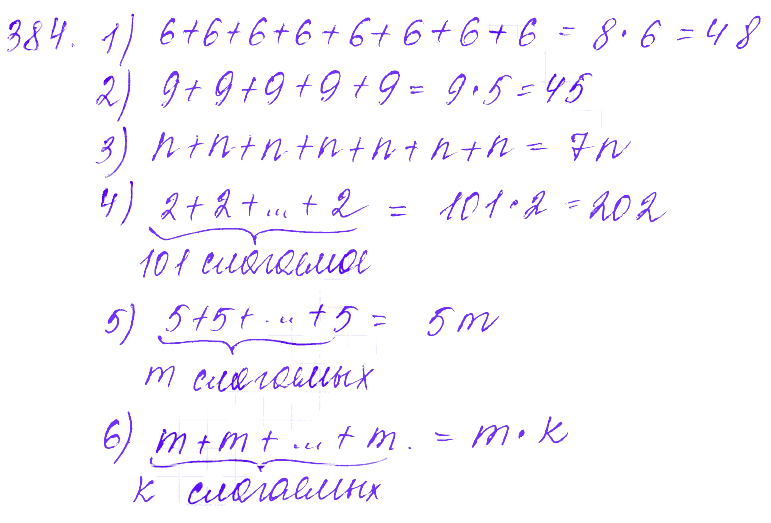 384. 1) 6+6+6+6+6+6+6+6 = 8·6 = 48
2) 9+9+9+9+9 = 9·5 = 45
3) n+n+n+n+n+n+n = 7n
4) 2+2+...+2 = 101·2 = 202
101 слагаемое
5) 5+5+...+5 = 5m
m слагаемых
6) m+m+...+m. = m·k
k слагаемых